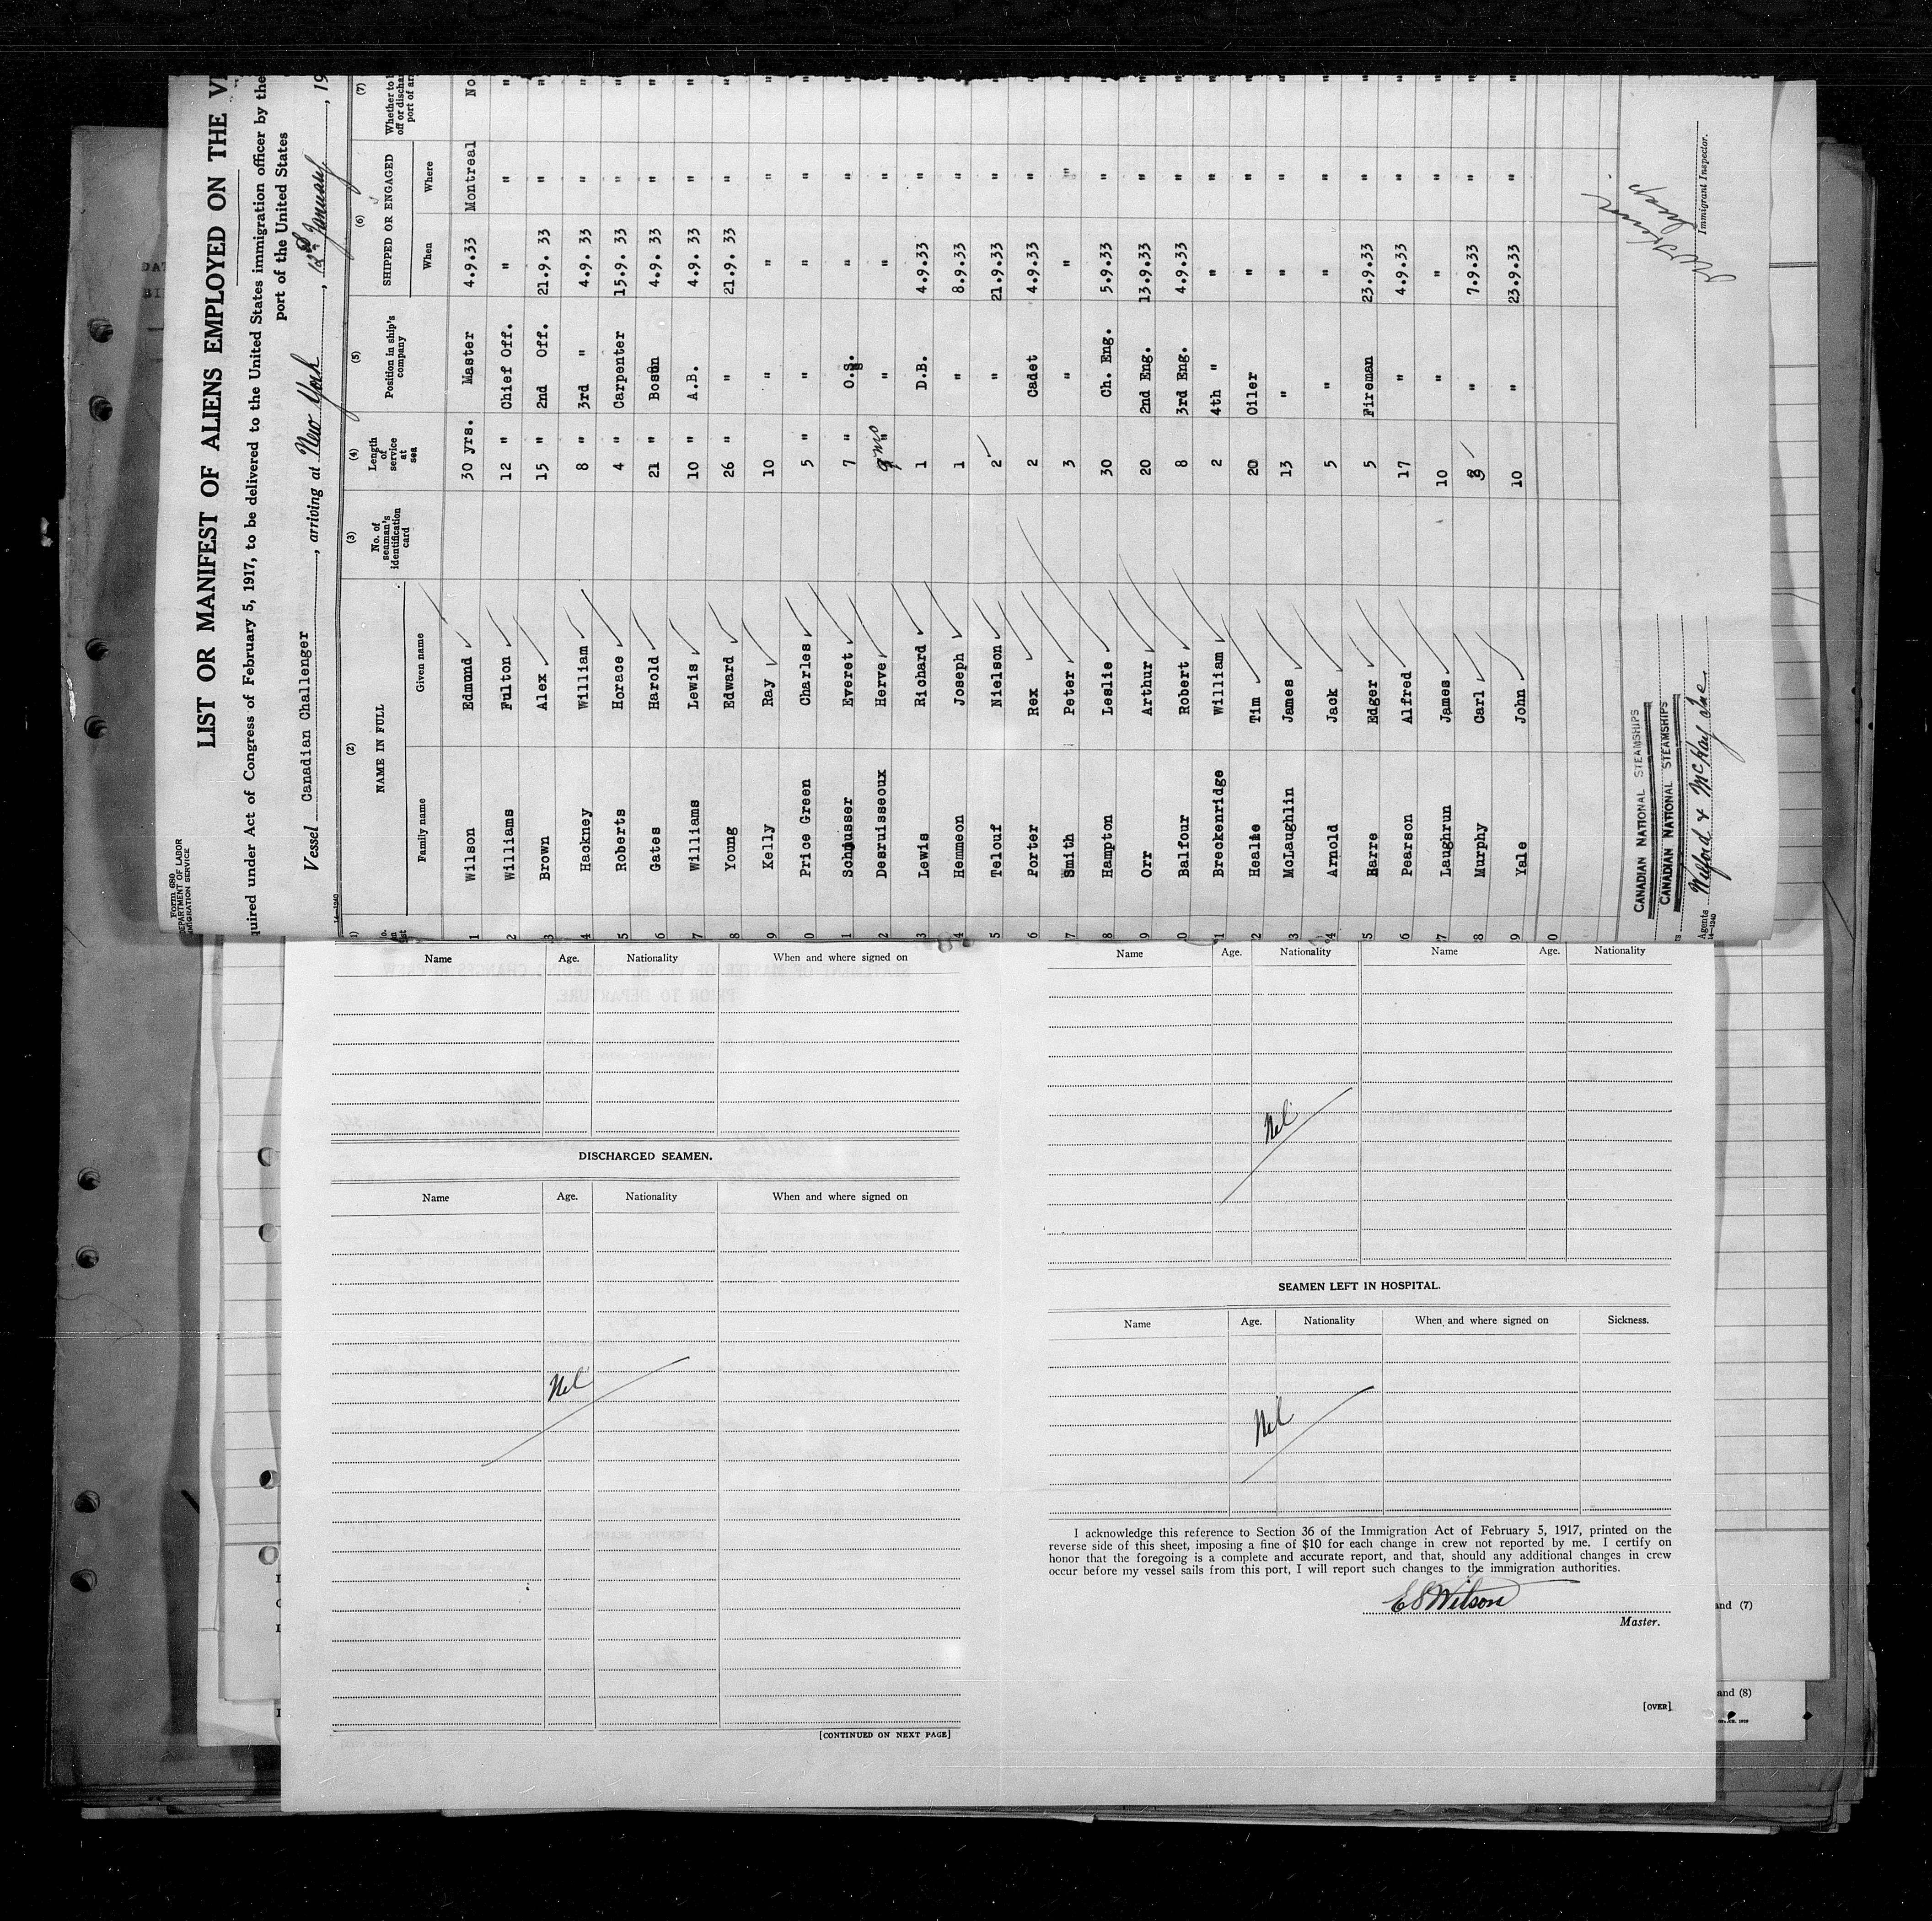 Form 680
DEPARTMENT OF LABOR
IMMIGRATION SERVICE
LIST OR MANIFEST OF ALIENS EMPLOYED ON THE
quired under Act of Congress of February 5, 1917, to be delivered to the United States immigration officer by the
port of the United States
Vessel Canadian Challenger, arriving at New York, 12th January, 19
14—1240
(2) (3) (4) (5) (6) (7)
NAME IN FULL No. of seaman's identification card Length of service at sea Position in ship's company SHIPPED OR ENGAGED Whether to
off or discha
port of ar
Family name Given name When Where
1 Wilson Edmund 30 yrs. Master 4.9.33 Montreal No
2 Williams Fulton 12 " Chief Off. " " "
3 Brown Alex 15 " 2nd Off. 21.9. 33 " "
4 Hackney William 8 " 3rd " 4.9. 33 " "
5 Roberts Horace 4 " Carpenter 15.9. 33 " "
6 Gates Harold 21 " Bosun 4.9. 33 " "
7 Williams Lewis 10 " A.B. 4.9. 33 " "
8 Young Edward 26 " " 21.9. 33 " "
9 Kelly Ray 10 " " " "
0 Price Green Charles 5 " " " " "
1 Schmusser Everet 7 " O.S. " " "
2 Desruisseoux Herve 9 mo " " " " "
3 Lewis Richard 1 D.B. 4.9.33 " "
4 Hemmeon Joseph 1 " 8.9.33 " "
5 Telouf Nielson 2 " 21.9.33 " "
6 Porter Rex 2 Cadet 4.9.33 " "
7 Smith Peter 3 " " " "
8 Hampton Leslie 30 Ch. Eng. 5.9.33 " "
9 Orr Arthur 20 2nd Eng. 13.9.33 " "
0 Balfour Robert 8 3rd Eng. 4.9.33 " "
1 Breckenridge William 2 4th " " " "
2 Healie Tim 20 Oiler " " "
3 McLaughlin James 13 " " " "
4 Arnold Jack 5 " " " "
5 Barre Edger 5 Fireman 23.9.33 " "
6 Pearson Alfred 17 " 4.9.33 " "
7 Laughrun James 10 " " " "
8 Murphy Carl " 7.9.33 " "
9 Yale John 10 " 23.9.33 " "
0
CANADIAN NATIONAL STEAMSHIPS
CANADIAN NATIONAL STEAMSHIPS
Agents Welford & McKay Inc.
14—1240
Immigrant Inspector.
Name Age. Nationality When and where signed on
DISCHARGED SEAMEN.
Name Age. Nationality When and where signed on
Nil
[CONTINUED ON NEXT PAGE]
Name Age. Nationality Name Age. Nationality
Nil
SEAMEN LEFT IN HOSPITAL.
Name Age. Nationality When and where signed on Sickness.
Nil
I acknowledge this reference to Section 36 of the Immigration Act of February 5, 1917, printed on the
reverse side of this sheet, imposing a fine of $10 for each change in crew not reported by me. I certify on
honor that the foregoing is a complete and accurate report, and that, should any additional changes in crew
occur before my vessel sails from this port, I will report such changes to the immigration authorities.
E S Wilson
Master.
[OVER]
and (7)
and (8)